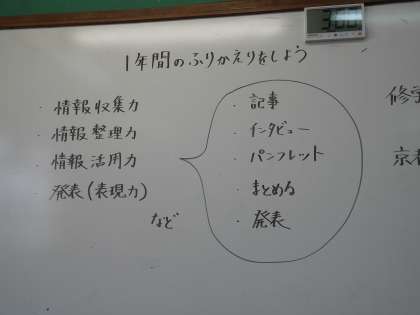 1年間のふりかえりをしよう
・情報収集力
・情報整理力
・情報活用力
・発表(表現力)
など
・記事
・インタビュー
・パンフレット
・まとめる
・発表
修学
京都